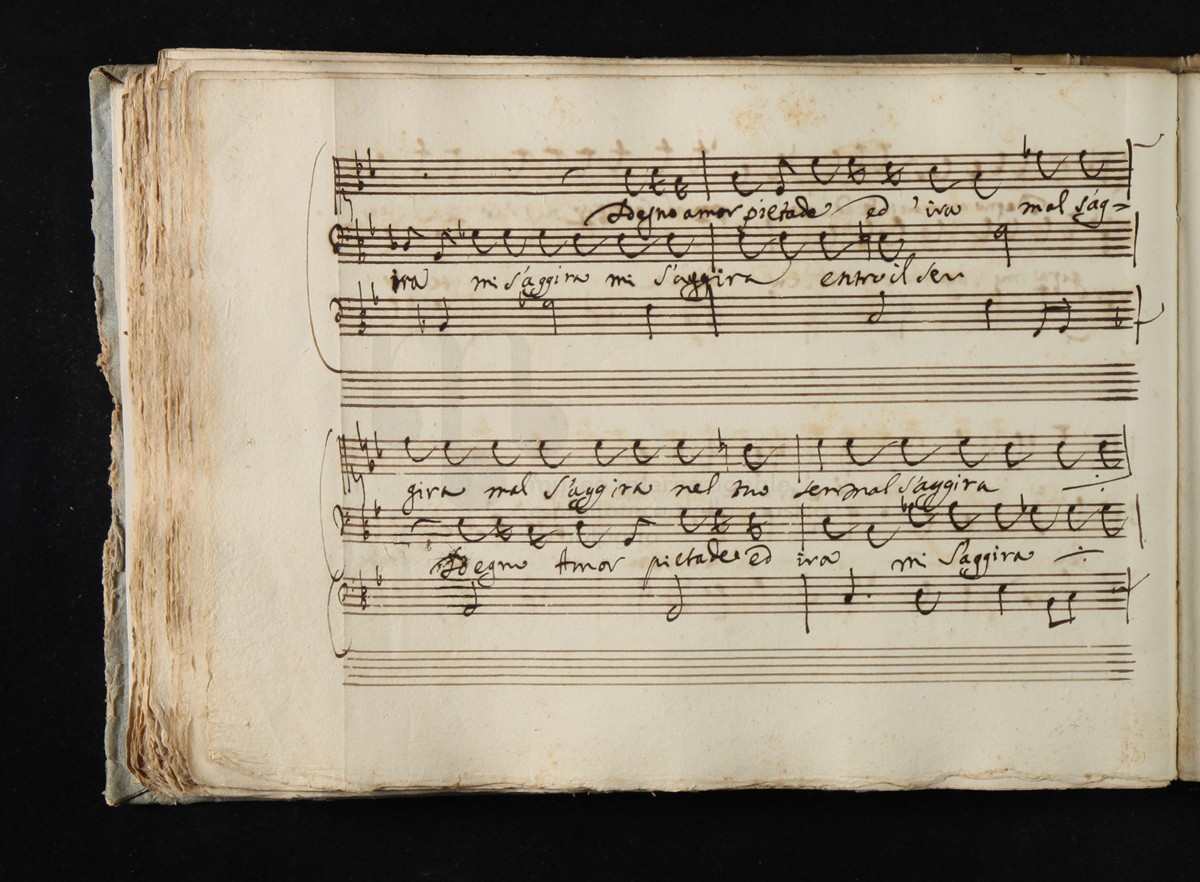 Sdegno amor pietade ed ira mal s'ag=
ira mi s'aggira mi s'aggira entro il sen
gira mal s'aggira nel tuo sen mal s'aggira
Sdegno Amor pietade ed ira mi s'aggira